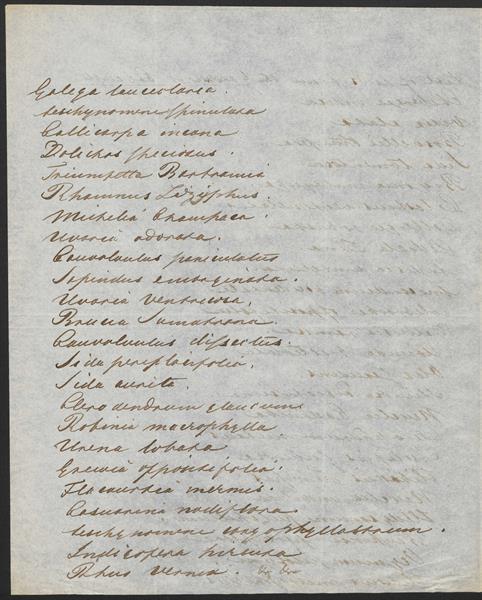 Galega lanceolaria.
Aeschynomene spinulosa
Callicarpa incana
Dolichos speciosus.
Triumfetta Bartramia
Rhamnus Zizyphus.
Michelia Champaca.
Uvaria odorata.
Convolvulus paniculatus
Sapindus emarginata.
Uvaria ventricosa,
Brucia Sumatrana.
Convolvulus dissectus.
Sida periplocifolia,
Sida aurita
Clerodendrum glaucum
Robinia macrophylla
Urena lobata
Grewia oppositifolia.
Flacourtia inermis.
Casuarina nodiflora
Aeschynomene
Indigofera hirsuta
Rhus vernix. &c &c